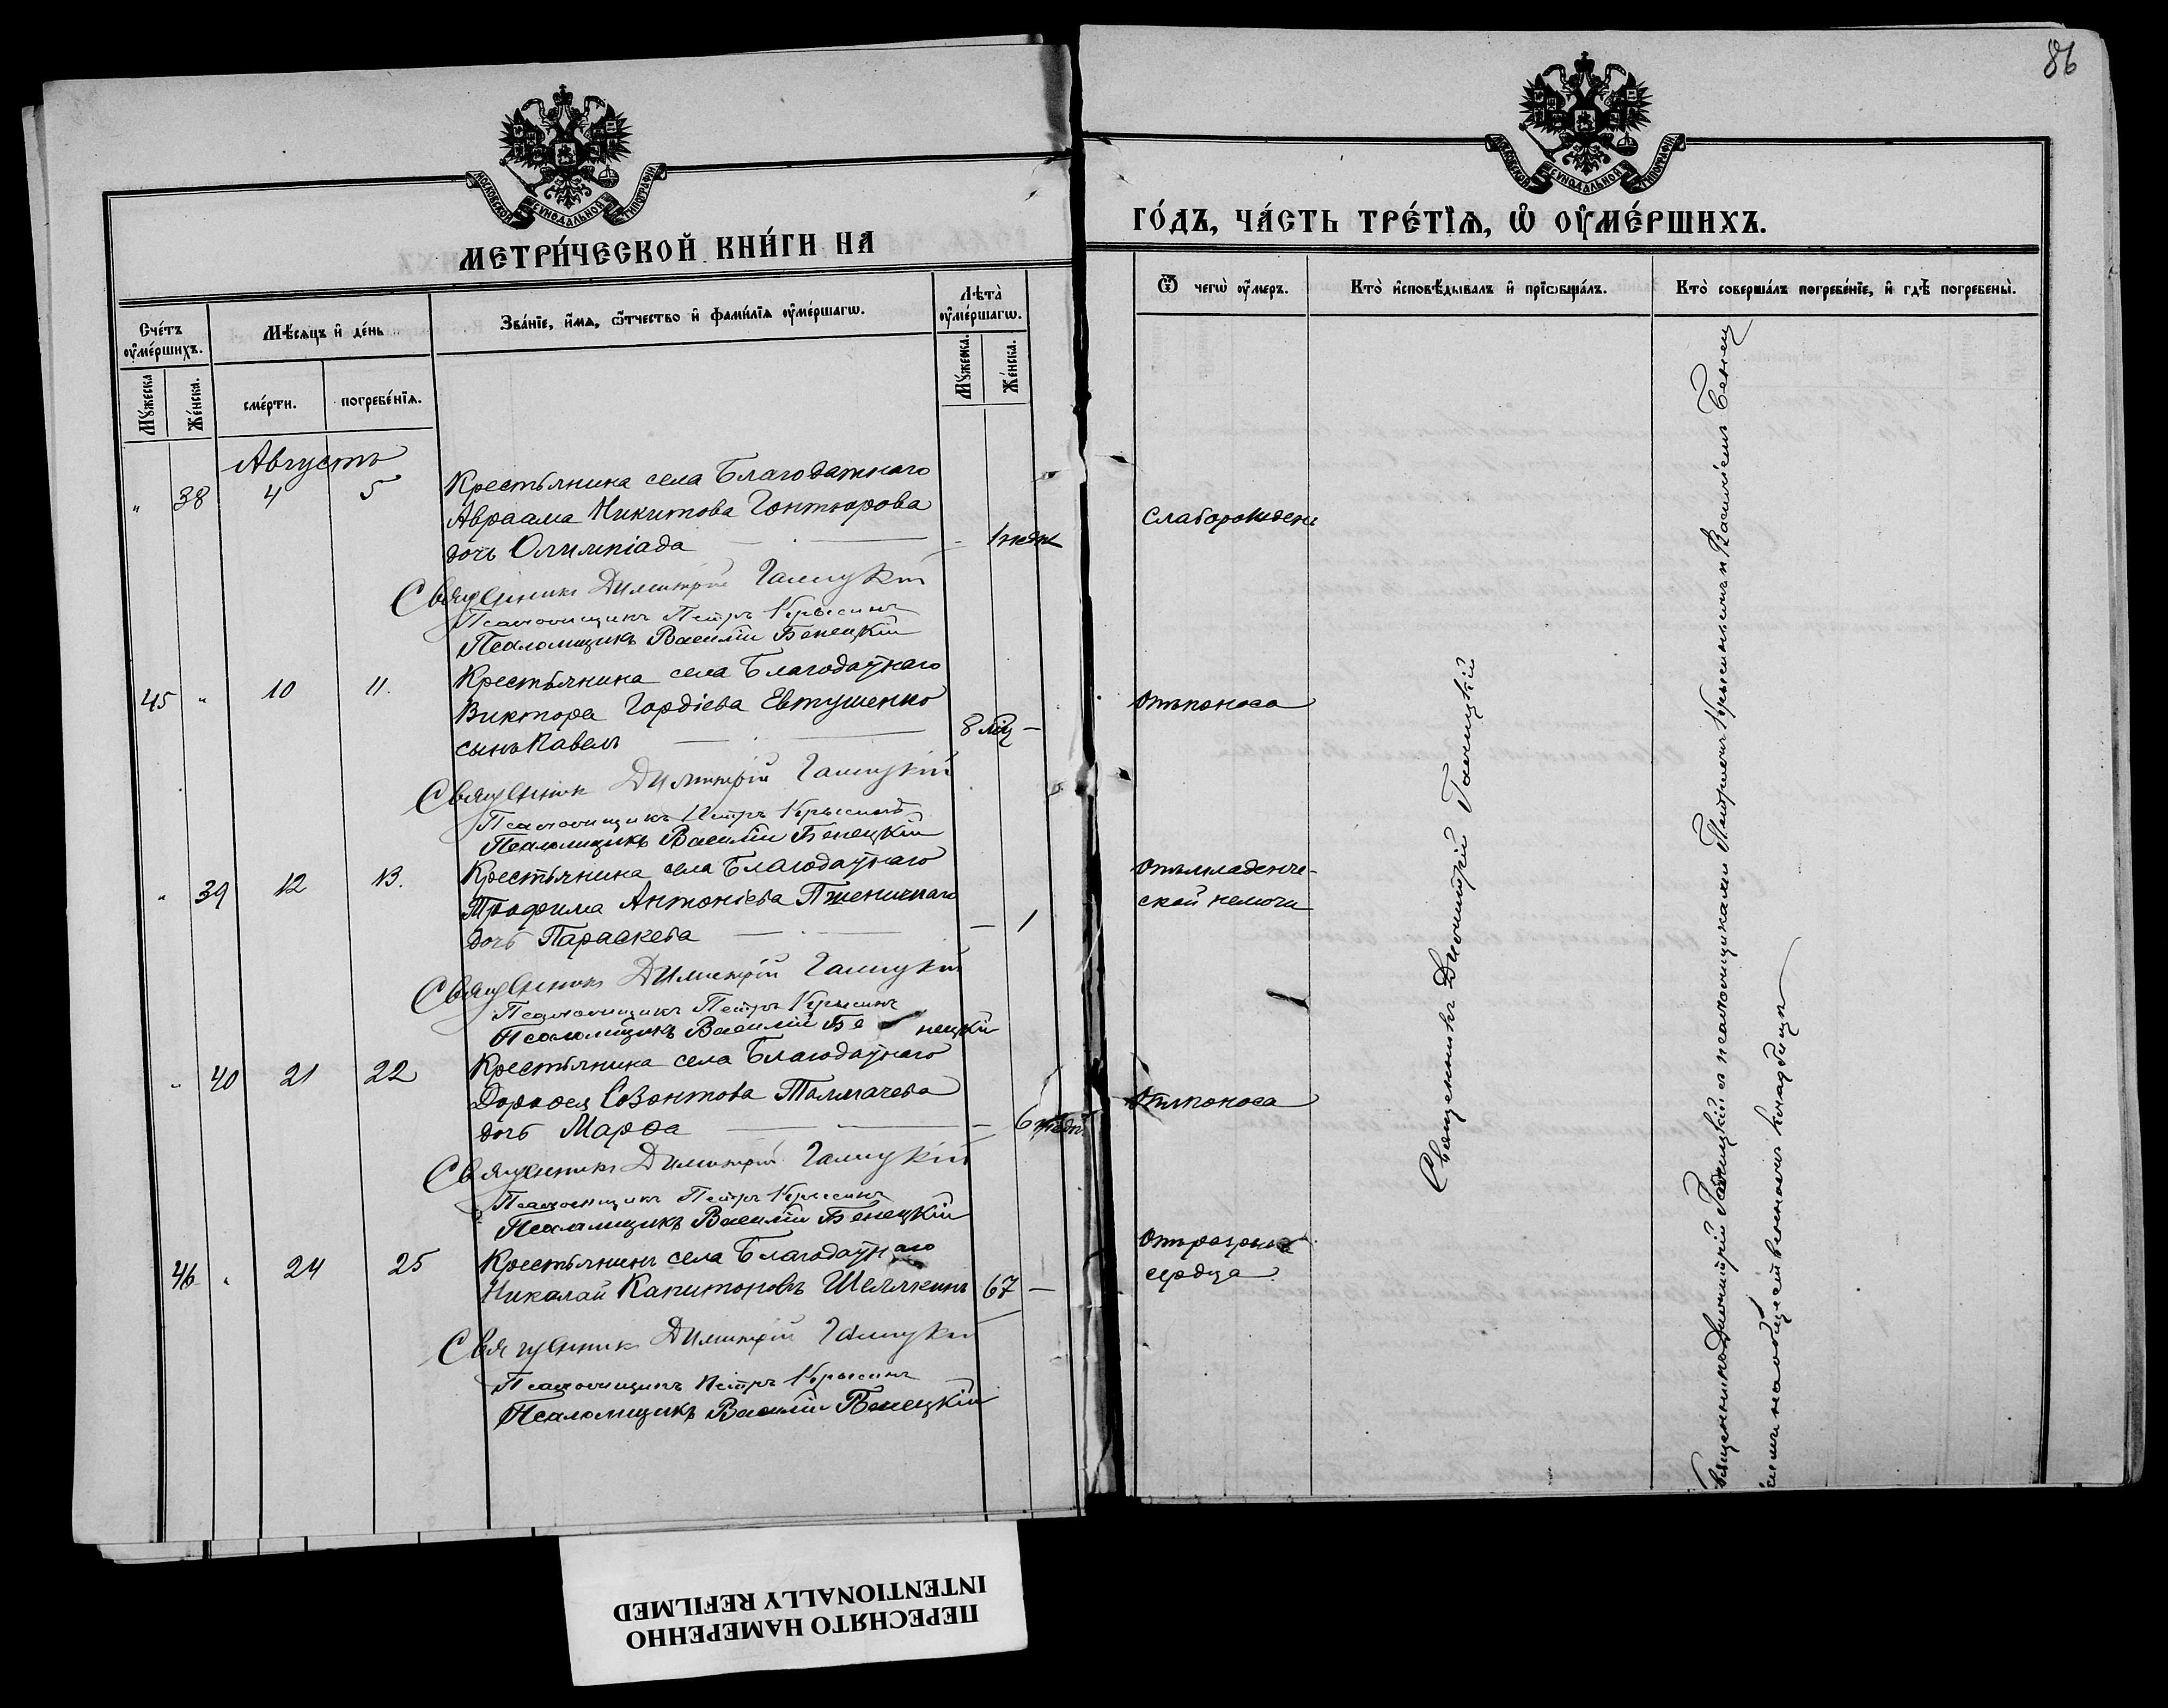 86
МОСКОВСКОЙ СѴНОДАЛЬНОЙ ТИПОГРАФІИ
МЕТРИ́ЧЕСКОЙ КНИ́ГИ НА
Сче́тъ оу҆ме́ршихъ.
Мꙋ́жеска
Же́нска.
Мѣ́сѧцъ и҆ де́нь
сме́рти.
погребе́нїѧ.
Зва́нїе, и҆́мѧ, ѻ҆́тчество и҆ фами́лїѧ оу҆ме́ршагѡ.
Лѣта̀ оу҆ме́ршагѡ.
Мꙋ́жеска.
Же́нска.
Августъ
" 38 4 5 Крестьянина села Благодатнаго
Авраама Никитова Гонтюрова
дочь Олимпіада — — 1
Священникъ Димитрій Галицкій
Псаломщикъ Петръ Крысинъ
Псаломщикъ Василій Бенецкій
45 " 10 11. Крестьянина села Благодатнаго
Виктора Гордіева Евтушенко
сынъ Павелъ — 8 мѣц —
Священникъ Димитрій Галицкій
Псаломщикъ Петръ Крысинъ
Псаломщикъ Василій Бенецкій
" 39 12 13. Крестьянина села Благодатнаго
Трофима Антоніева Пшеничнаго
дочь Параскева — — 1
Священникъ Димитрій Галицкій
Псаломщикъ Петръ Крысинъ
Псаломщикъ Василій Бенецкій
" 40 21 22 Крестьянина села Благодатнаго
Дорофея Созонтова Толмачева
дочь Марѳа — — 6 недѣл
Священникъ Димитрій Галицкій
Псаломщикъ Петръ Крысинъ
Псаломщикъ Василій Бенецкій
46 " 24 25 Крестьянинъ села Благодатнаго
Николай Капитоновъ Шелякинъ 67 —
Священникъ Димитрій Галицкій
Псаломщикъ Петръ Крысинъ
Псаломщикъ Василій Бенецкій
МОСКОВСКОЙ СѴНОДАЛЬНОЙ ТИПОГРАФІИ
ГО́ДЪ, ЧА́СТЬ ТРЕ́ТЇѦ, Ѡ҆ ОУ҆МЕ́РШИХЪ.
Ѿ чегѡ̀ оу҆́меръ.
Кто̀ и҆сповѣ́дывалъ и҆ прїѡбща́лъ.
Кто̀ соверша́лъ погребе́нїе, и҆ гдѣ̀ погребены̀.
Слаборожден
Отъ поноса
Отъ младенче-
ской немочи
Отъ поноса
Отъ разрыва
сердца
Священникъ Димитрій Галицкій
Священникъ Димитрій Галицкій съ псаломщиками Петромъ Крысинымъ и Василіемъ Бенец
кимъ на общественномъ кладбищѣ
ПЕРЕСНЯТО НАМЕРЕННО
INTENTIONALLY REFILMED